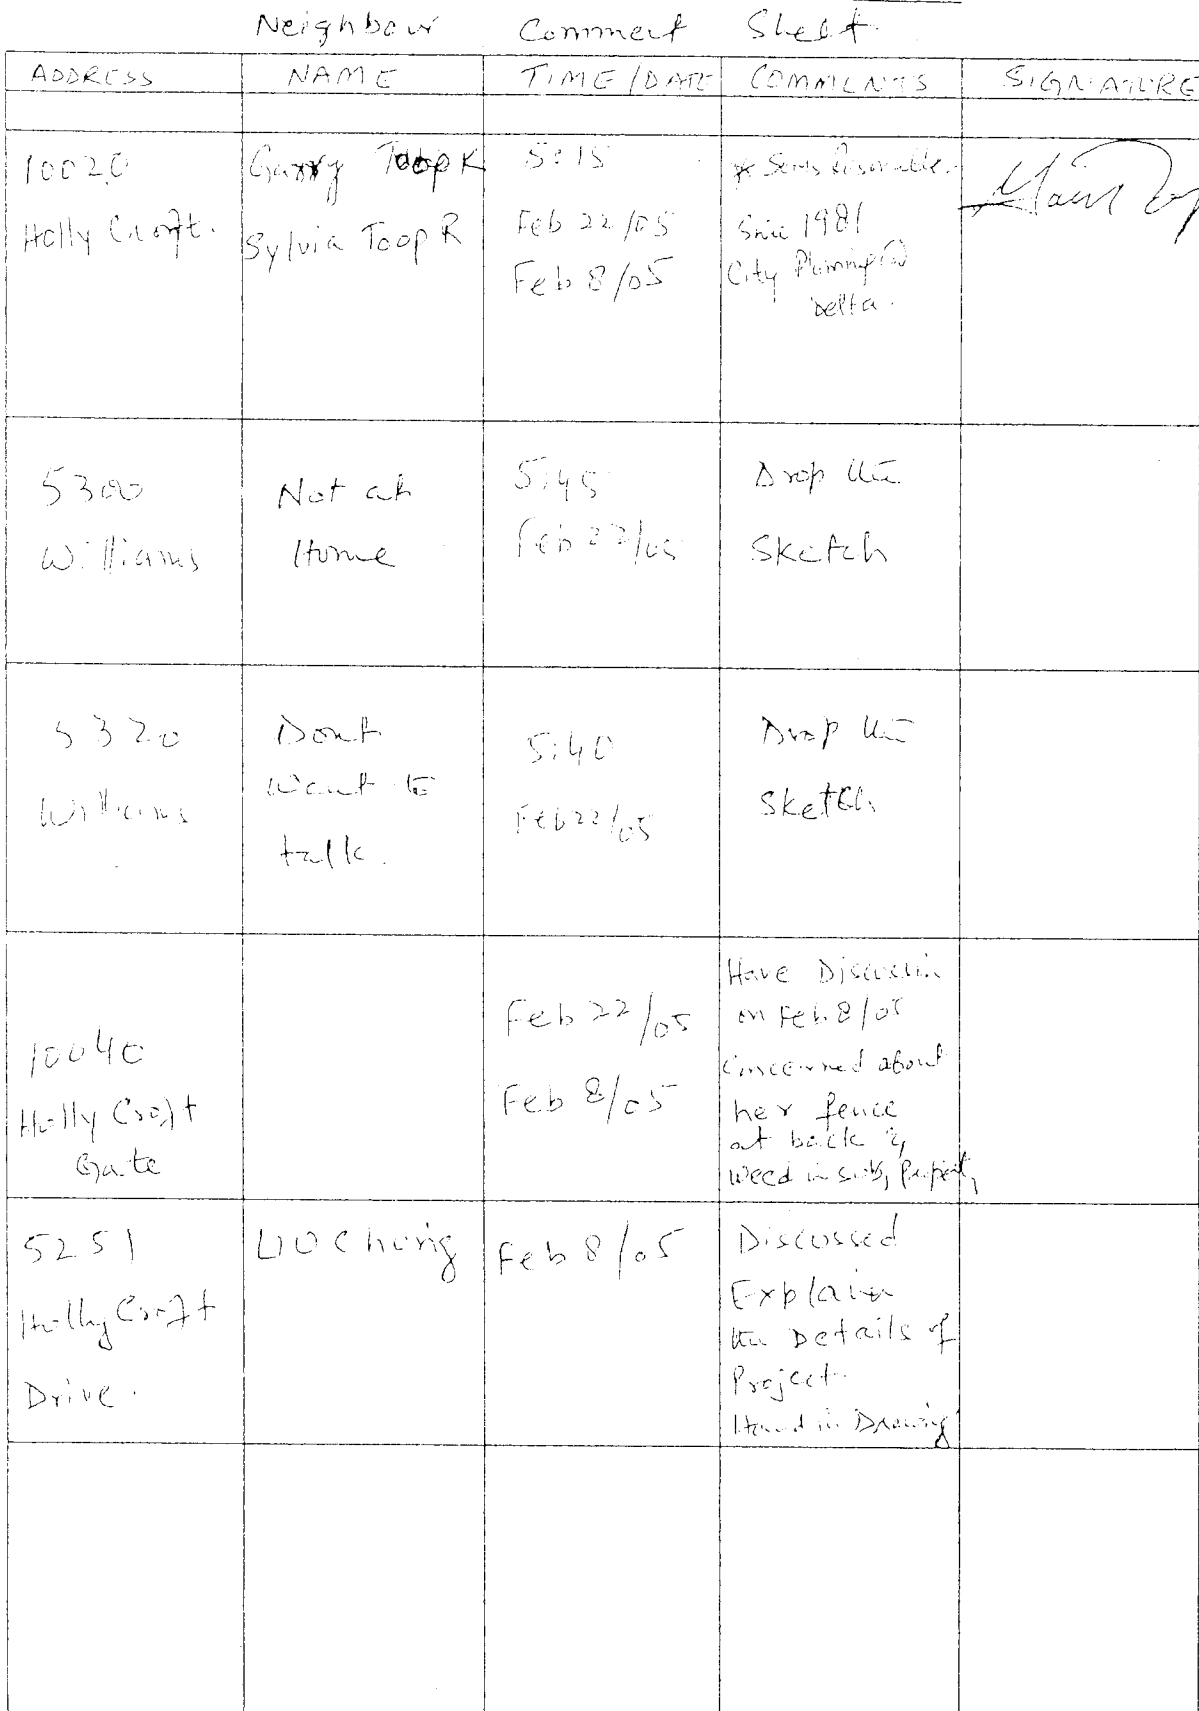 Neighbour Comment Sheet
ADDRESS NAME TIME/DATE COMMENTS SIGNATURE
10020
Holly Croft.
Garry Toop
Sylvia Toop R
5:15
Feb 22/05
Feb 8/05
* Sems Resonable.
Since 1981
City Planning @
Delta.
5300
Williams
Not at
Home
5:45
Feb 22/05
Drop the
Sketch
5320
Williams
Dont
Want to
talk.
5:40
Feb 22/05
Drop the
Sketch
10040
Holly Croft
Gate
Feb 22/05
Feb 8/05
Have Discussin
on Feb 8/05
Concerned about
her fence
at back &
weed in Property
5251
Holly Croft
Drive.
Feb 8/05
Discussed
Explain
the Details of
Project.
Hand in Drawing